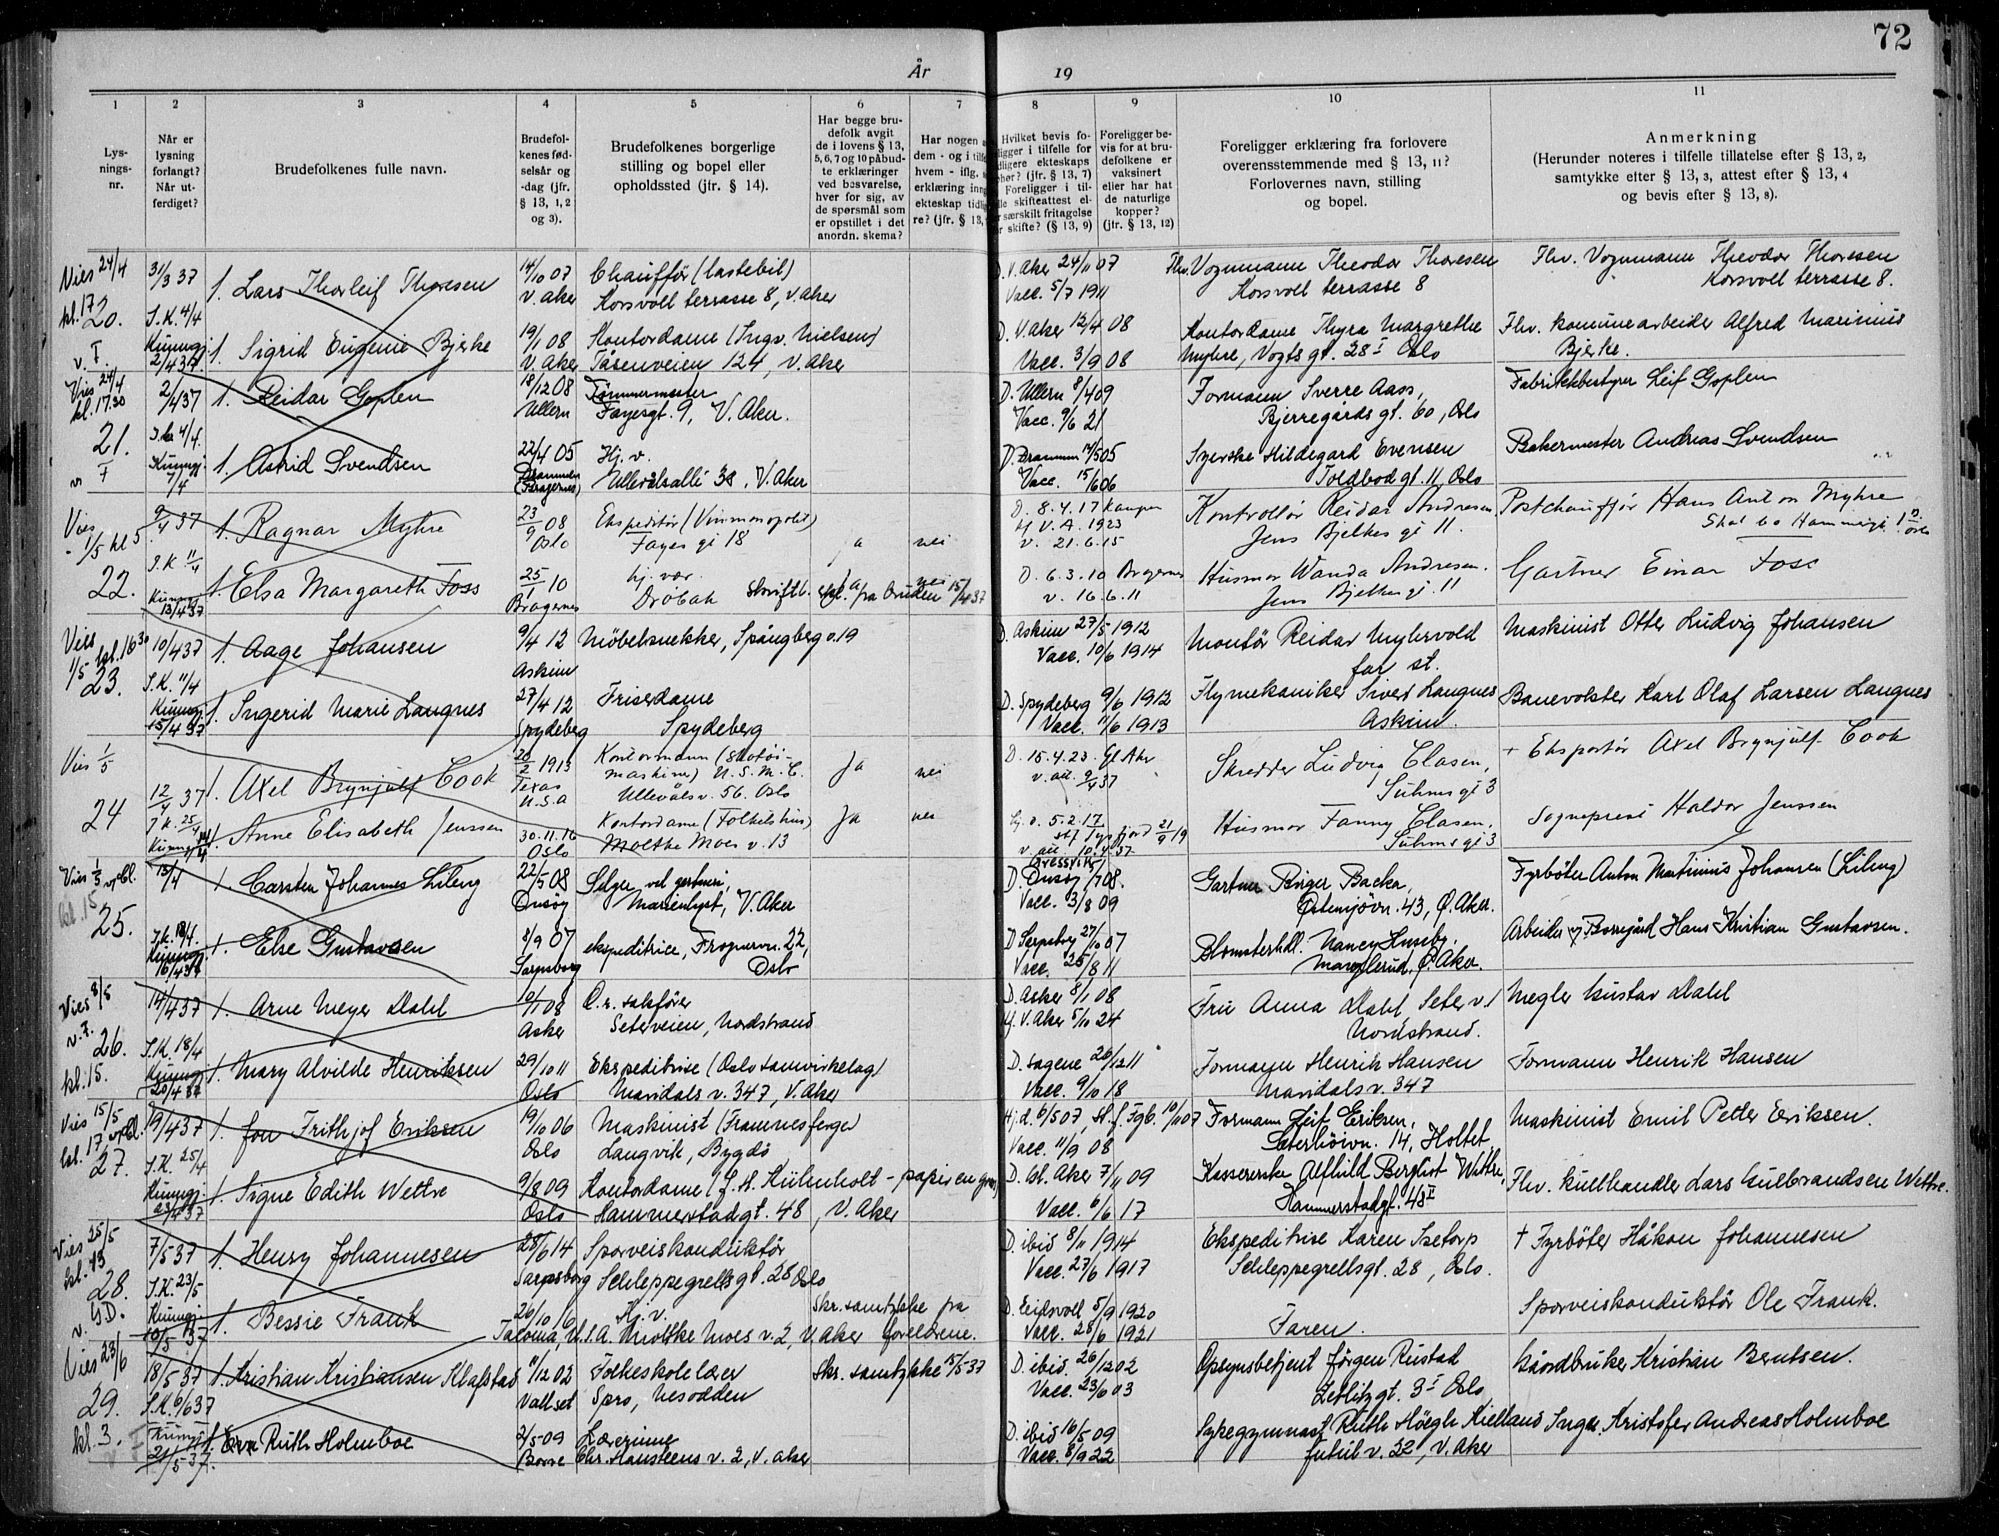 72
År 19
1
2
3
4
5
6
7
8
9
10
11
Lysnings-
nr.
Når er
lysning
forlangt?
Når ut-
ferdiget?
Brudefolkenes fulle navn.
Brudefol-
kenes fød-
selsår og
-dag (jfr.
§ 13, 1, 2
og 3).
Brudefolkenes borgerlige
stilling og bopel eller
opholdssted (jfr. § 14).
Har begge bru-
defolk avgit
de i lovens § 13,
5, 6, 7 og 10 påbud-
te erklæringer
ved besvarelse,
hver for sig, av
de spørsmål som
er opstillet i det
anordn. skema?
Har nogen a
dem - og i tilf
hvem - iflg.
erklæring inng
ekteskap tidli
re? (jfr. § 13,
Hvilket bevis fo-
religger i tilfelle for
ekteskaps
(jfr. § 13, 7)
Foreligger i til-
skifteattest el-
særskilt fritagelse
skifte? (§ 13, 9)
Foreligger be-
vis for at bru-
defolkene er
vaksinert
eller har hat
de naturlige
kopper?
(jfr. § 13, 12)
Foreligger erklæring fra forlovere
overensstemmende med § 13, 11?
Forlovernes navn, stilling
og bopel.
Anmerkning
(Herunder noteres i tilfelle tillatelse efter § 13, 2,
samtykke efter § 13, 3, attest efter § 13, 4
og bevis efter § 13, 8).
Vies 24/4
kl. 17
20.
v. F.
31/3 37
S.K. 4/4
Kunngj.
2/4 37.
1. Lars Thorleif Thoresen
14/10 07
V. Aker
Chauffør (lastebil)
Korsvoll terrasse 8, V. Aker
D. V. Aker 24/11 07
Vacc. 5/7 1911
Fhv. Vognmann Theodor Thoresen
Korsvoll terrasse 8
Fhv. Vognmann Theodor Thoresen
Korsvoll terrasse 8.
1. Sigrid Eugenie Bjerke
19/1 08
V. Aker
Kontordame (Ingv. Nielsen)
Tåsenveien 124, V. Aker
D. V. Aker 12/4 08
Vacc. 3/9 08
Kontordame Thyra Margrethe
Myhre, Vogts gt. 28 I Oslo
Fhv. kommunearbeider Alfred Marinius
Bjerke.
Vies 24/4
kl. 17.30
21.
v. F
2/4 37
4/4
Kunngj.
7/4
1. Reidar Goplen
18/12 08
Ullern
Tømmermester
Fayesgt. 9, V. Aker.
D. Ullern 8/4 09
Vacc. 9/6 21
Formann Sverre Aass,
Bjerregårds gt. 60, Oslo
Fabrikkbestyrer Leif Goplen
1. Astrid Svendsen
22/4 05
Drammen
(Bragernes)
Hj. v.
Ullevålsallé 38, V. Aker
D. Drammen 14/5 05
Vacc. 15/6 06
Syerske Hildegard Evensen
Toldbod gt. 11, Oslo
Bakermester Andreas Svendsen
Vies
1/5 kl 5.
22.
9/4 37
S.K. 11/4
Kunngj.
13/4 37
1. Ragnar Myhre
23/9 08
Oslo
Ekspeditør (Vinmonopolet)
Fayes gt 18
ja
nei
D. 8.4.17 Kampen
V.A. 1923
v. 21.6.15
Kontrollør Reidar Andresen
Jens Bjelkes gt 11.
Postchauffør Hans Anton Myhre
1. Elsa Margareth Foss
25/1 10
Bragernes
hj. vær.
Drøbak
Skriftl. erkl. fra bruden 15/4 37
ja
nei
D. 6.3.10 Bragernes
v. 16.6.11
Husmor Wanda Andresen.
Jens Bjelkes gt. 11
Gartner Einar Foss
Vies
1/5 kl. 16 30
23.
10/4 37
S.K. 11/4
Kunngj.
15/4 37
1. Aage Johansen
9/4 12
Askim
Møbelsnekker, Spångberg v. 19
D. Askim 27/5 1912
Vacc. 10/6 1914
Montør Reidar Myhrvold
far st.
Maskinist Otter Ludvig Johansen
1. Ingerid Marie Langnes
27/4 12
Spydeberg
Frisørdame
Spydeberg
D. Spydeberg 9/6 1912
Vacc. 11/6 1913
Flymekaniker Sivert Langnes
Askim.
Banevokter Karl Olaf Larsen Langnes
Vies 1/5
24
12/4 37
S.K. 25/4
Kunngj. 14/4
1. Axel Brynjulf Cook
20/2 1913
Texas
U.S.A
Kontormann (Skotøi-
maskin) U.S.M.C.
Ullevålsv. 56. Oslo
Ja
nei
D. 15.4.23. Gl. Aker
v. att. 9/4 37
Skredder Ludvig Clasen,
Suhms gt 3
+ Eksportør Axel Brynjulf Cook
1. Anne Elisabeth Jenssen
30.11.16
Oslo
Kontordame (Folketshus)
Moltke Moes v. 13
Ja
nei
Hj. d. 5.2.17
stf. Tysfjord 21/9 19
v. att. 10.4.37
Husmor Fanny Clasen.
Suhms gt 3
Sogneprest Haldor Jenssen
Vies 1/5
kl. 15
25.
13/4
S.K. 18/4.
Kunngj.
16/4 37
1. Carsten Johannes Lileng
22/5 08
Onsøy
Selger ved gartneri,
Marienlyst, V. Aker
D. Onsøy
Vacc. 3/8 09
Gartner Birger Backa,
Østensjøvn. 43, Ø. Aker.
Fyrbøter Anton Martinius Johansen (Lileng)
1. Else Gustavsen
8/9 07
Sarpsborg
ekspeditrice, Frognervn. 22,
Oslo
D. Sarpsborg 27/10 07
Vacc. 25/8 11
Blomsterhdl. Nancy Huseby,
Manglerud, Ø. Aker.
Arbeider v/ Borregård Hans Kristian Gustavsen.
Vies 8/5
v. F.
26.
kl. 15.
14/4 37
S.K. 18/4
Kunngj.
20/4 37
1. Arne Meyer Dahl
10/1 08
Asker
O.r. sakfører
Seterveien, Nordstrand
D. Asker 8/1 08
V. Aker 5/10 24
Fru Anna Dahl Seter v. 1
Nordstrand.
Megler Gustav Dahl
1. Mary Alvilde Henriksen
29/10 11
Oslo
Ekspeditrise (Oslo Samvirkelag)
Maridals v. 347, V. Aker
D. Sagene 26/12 11
Vacc. 9/10 18
Formann Henrik Hansen
Maridals v. 347
Formann Henrik Hansen
Vies 15/5
kl. 17
27.
19/4 37
S.K. 25/4
Kunngj.
1. Jon Frithjof Eriksen
19/10 06
Oslo
Maskinist (Framnesferge)
Langvik, Bygdø
Hj. d. 6/5 07, St. f. Fgb. 10/11 07
Vacc. 11/9 08
Formann Leif Eriksen,
Sæterhøivn. 14, Holtet
Maskinist Emil Petter Eriksen.
1. Signe Edith Wettre
9/8 09
Oslo
Kontordame (J. H. Kühenholt - papir en gros)
Hammerstadgt. 48, V. Aker
D. Gl. Aker 7/11 09
Vacc. 6/6 17
Kassererske Alfhild Berglist Wettre,
Hammerstadgt. 48 II
Fhv. kullhandler Lars Gulbrandsen Wettre.
Vies 25/5
kl. 13
28.
v. G.D.
7/5 37
S.K. 23/5
Kunngj.
10/5 37
1. Henry Johannesen
28/6 14
Sarpsborg
Sporveiskonduktør
Schleppegrellsgt. 28 Oslo
D. ibid 8/11 1914
Vacc. 27/6 1917
Ekspeditrise Karen Isetorp
Schleppegrellsgt. 28, Oslo.
+ Fyrbøter Håkon Johannesen
1. Bessie Frank
26/10 16
Tacoma, U.S.A.
Hj. v.
Moltke Moes v. 2, V. Aker
Skr. samtykke fra
foreldrene.
D. Eidsvoll 5/9 1920
Vacc. 28/6 1921
Faren.
Sporveiskonduktør Ole Frank.
Vies 23/6
29.
kl. 3.
18/5 37
S.K. 6/6 37
Kunngj.
21/5 37.
1. Kristian Kristiansen Klafstad
11/12 02
Vallset
Folkeskolelærer
Spro, Nesodden
Skr. samtykke 15/5 37
D. ibid. 26/12 02
Vacc. 23/6 03
Opsynsbetjent Jørgen Rustad
Zetlitzgt. 3 I Oslo
Gårdbruker Kristian Berntsen.
1. Eva Ruth Holmboe
2/5 09
Borre
Lærerinne
Chr. Hansteens v. 2, V. Aker
D. ibid 16/5 09
Vacc. 8/9 22
Sykegymnast Ruth Höegh Kielland
Jutul v. 32, V. Aker
Ingen. Kristofer Andreas Holmboe